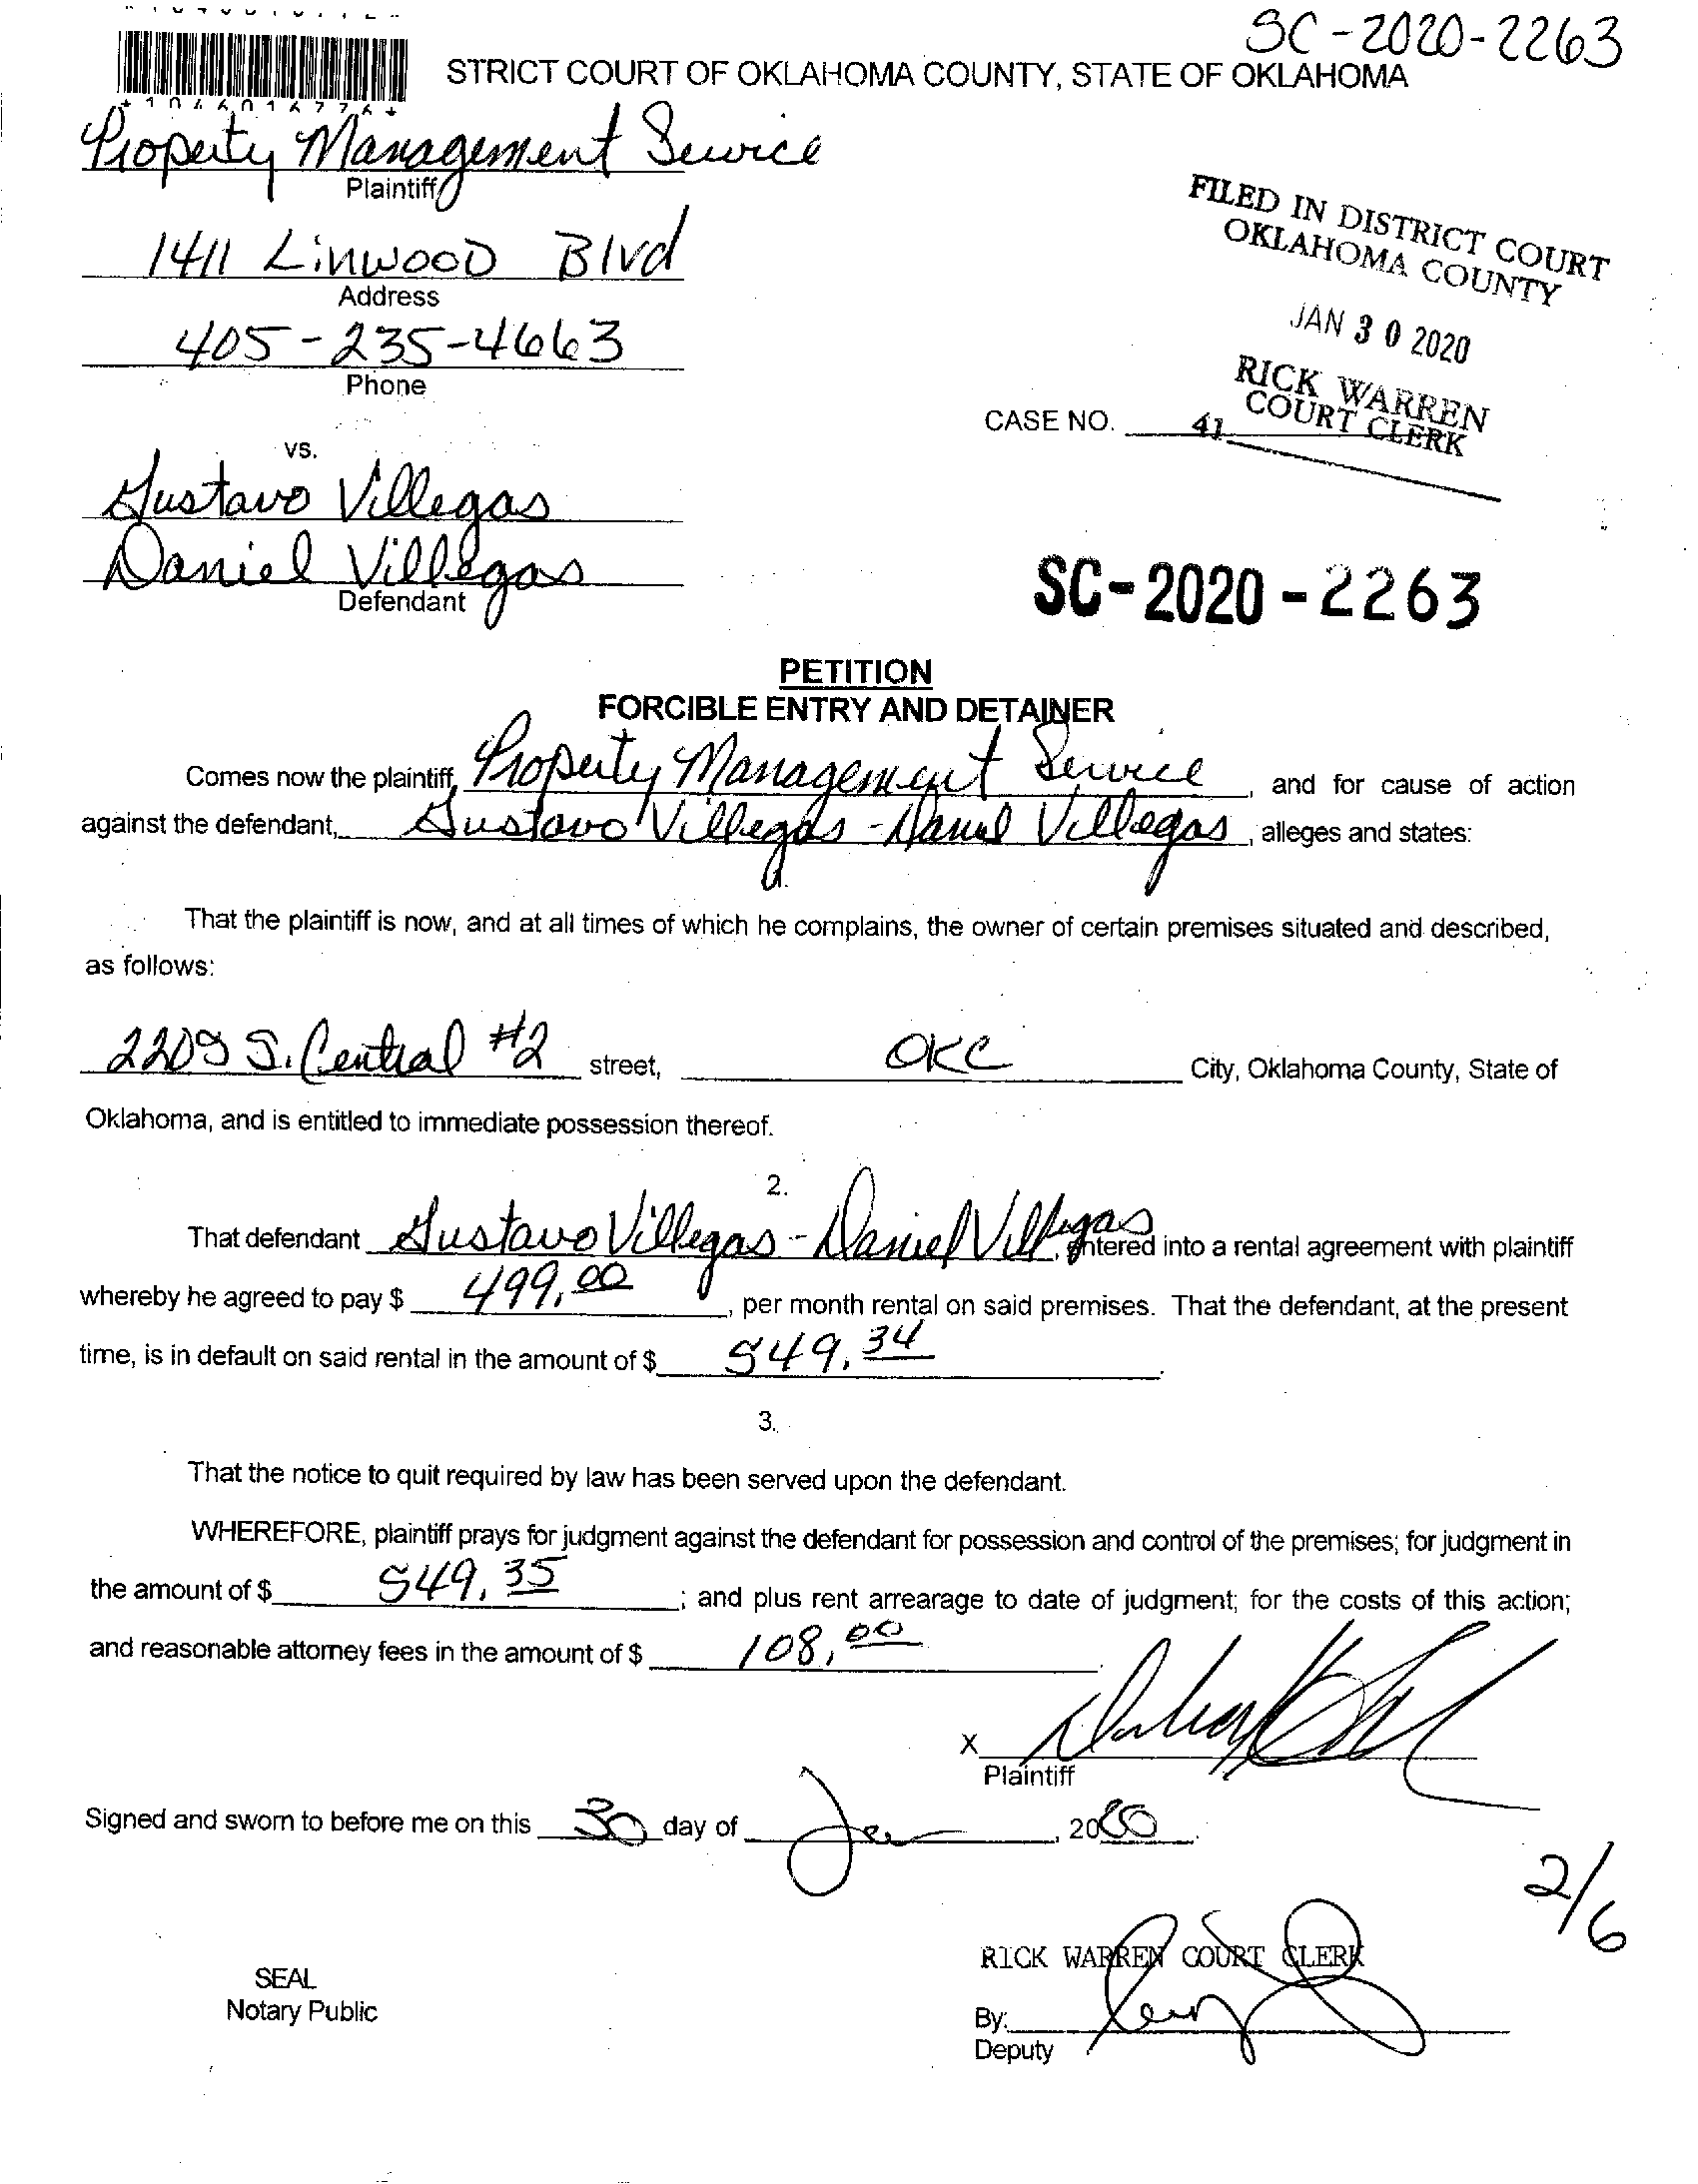 SC-2020-2263
STRICT COURT OF OKLAHOMA COUNTY, STATE OF OKLAHOMA
Property Management Service
Plaintiff
1411 Linwood Blvd
Address
405-235-4663
Phone
FILED IN DISTRICT COURT
OKLAHOMA COUNTY
JAN 30 2020
RICK WARREN
COURT CLERK
CASE NO. 41
vs.
Gustavo Villegas
Daniel Villegas
Defendant
SC-2020-2263
PETITION
FORCIBLE ENTRY AND DETAINER
Comes now the plaintiff, Property Management Service, and for cause of action
against the defendant, Gustavo Villegas - Daniel Villegas, alleges and states:
That the plaintiff is now, and at all times of which he complains, the owner of certain premises situated and described,
as follows:
2209 S. Central #2 street, OKC City, Oklahoma County, State of
Oklahoma, and is entitled to immediate possession thereof.
2.
That defendant Gustavo Villegas - Daniel Villegas, entered into a rental agreement with plaintiff
whereby he agreed to pay $ 499.00, per month rental on said premises. That the defendant, at the present
time, is in default on said rental in the amount of $ 549.34.
3.
That the notice to quit required by law has been served upon the defendant.
WHEREFORE, plaintiff prays for judgment against the defendant for possession and control of the premises; for judgment in
the amount of $ 549.35; and plus rent arrearage to date of judgment; for the costs of this action;
and reasonable attorney fees in the amount of $ 108.00.
X
Plaintiff
Signed and sworn to before me on this 30 day of Jan, 2020.
2/6
RICK WARREN COURT CLERK
SEAL
Notary Public
By:
Deputy